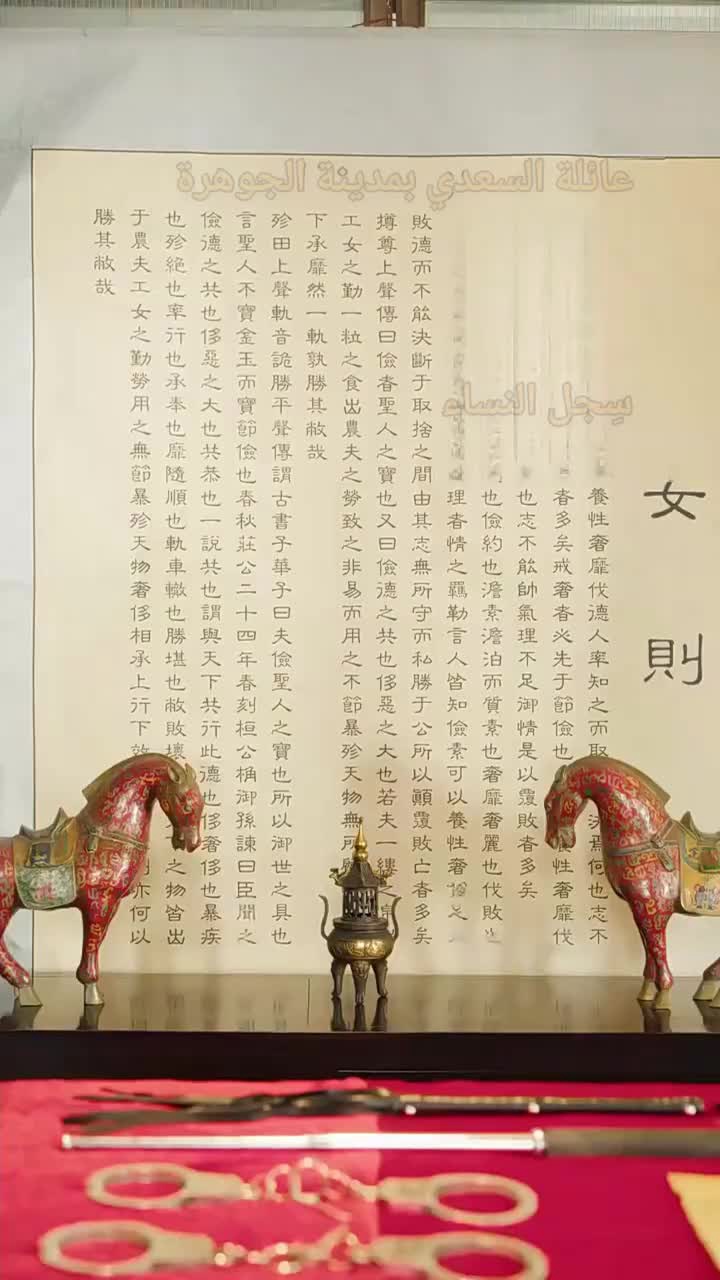 عائلة السعدي بمدينة الجوهرة
سجل النساء
女則
養性奢靡伐德人率知之而取決焉何也志不
者多矣戒奢者必先于節儉也養性奢靡伐
也志不能帥氣理不足御情是以覆敗者多矣
也儉約也澹素澹泊而質素也奢靡奢麗也伐敗也
理者情之羈勒言人皆知儉素可以養性奢
敗德而不能決斷于取捨之間由其志無所守而私勝于公所以顚覆敗亡者多矣
撙尊上聲傳曰儉者聖人之寶也又曰儉德之共也侈惡之大也若夫一縷之帛
工女之勤一粒之食出農夫之勞致之非易而用之不節暴殄天物無所
下承靡然一軌孰勝其敝哉
殄田上聲軌音詭勝平聲傳謂古書子華子曰夫儉聖人之寶也所以御世之具也
言聖人不寶金玉而寶節儉也春秋莊公二十四年春刻桓公桷御孫諫曰臣聞之
儉德之共也侈惡之大也共恭也一說共也謂與天下共行此德也侈奢侈也暴疾
也殄絕也率行也承奉也靡隨順也軌車轍也勝堪也敝敗壞之物皆出
于農夫工女之勤勞用之無節暴殄天物奢侈相承上行下效亦何以
勝其敝哉